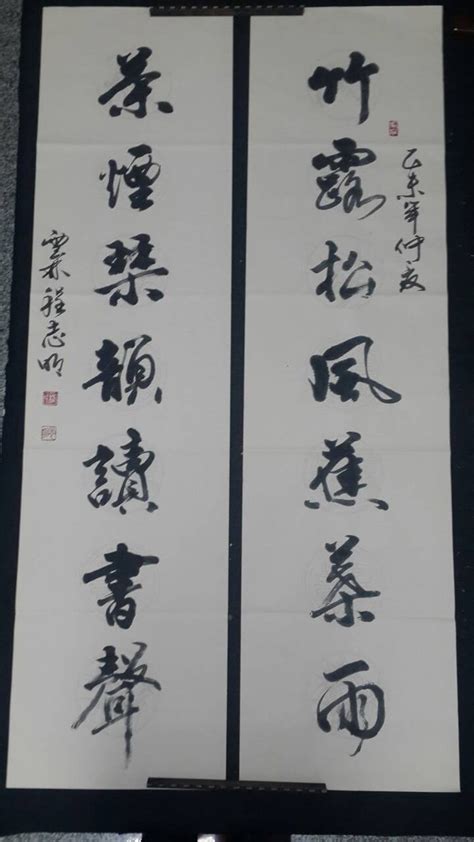 乙未年仲夏
竹露松風蕉葉雨
茶煙琴韻讀書聲
雲林程志明